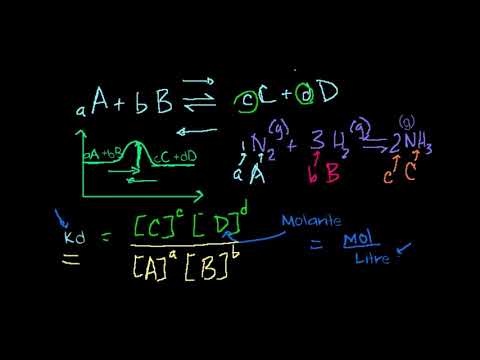 aA + bB ⇌ cC + dD
aA+bB cC+dD
1N₂(g) + 3H₂(g) ⇌ 2NH₃(g)
a A b B c C
Kd = [C]ᶜ[D]ᵈ
[A]ᵃ[B]ᵇ
Molarite = mol
Litre